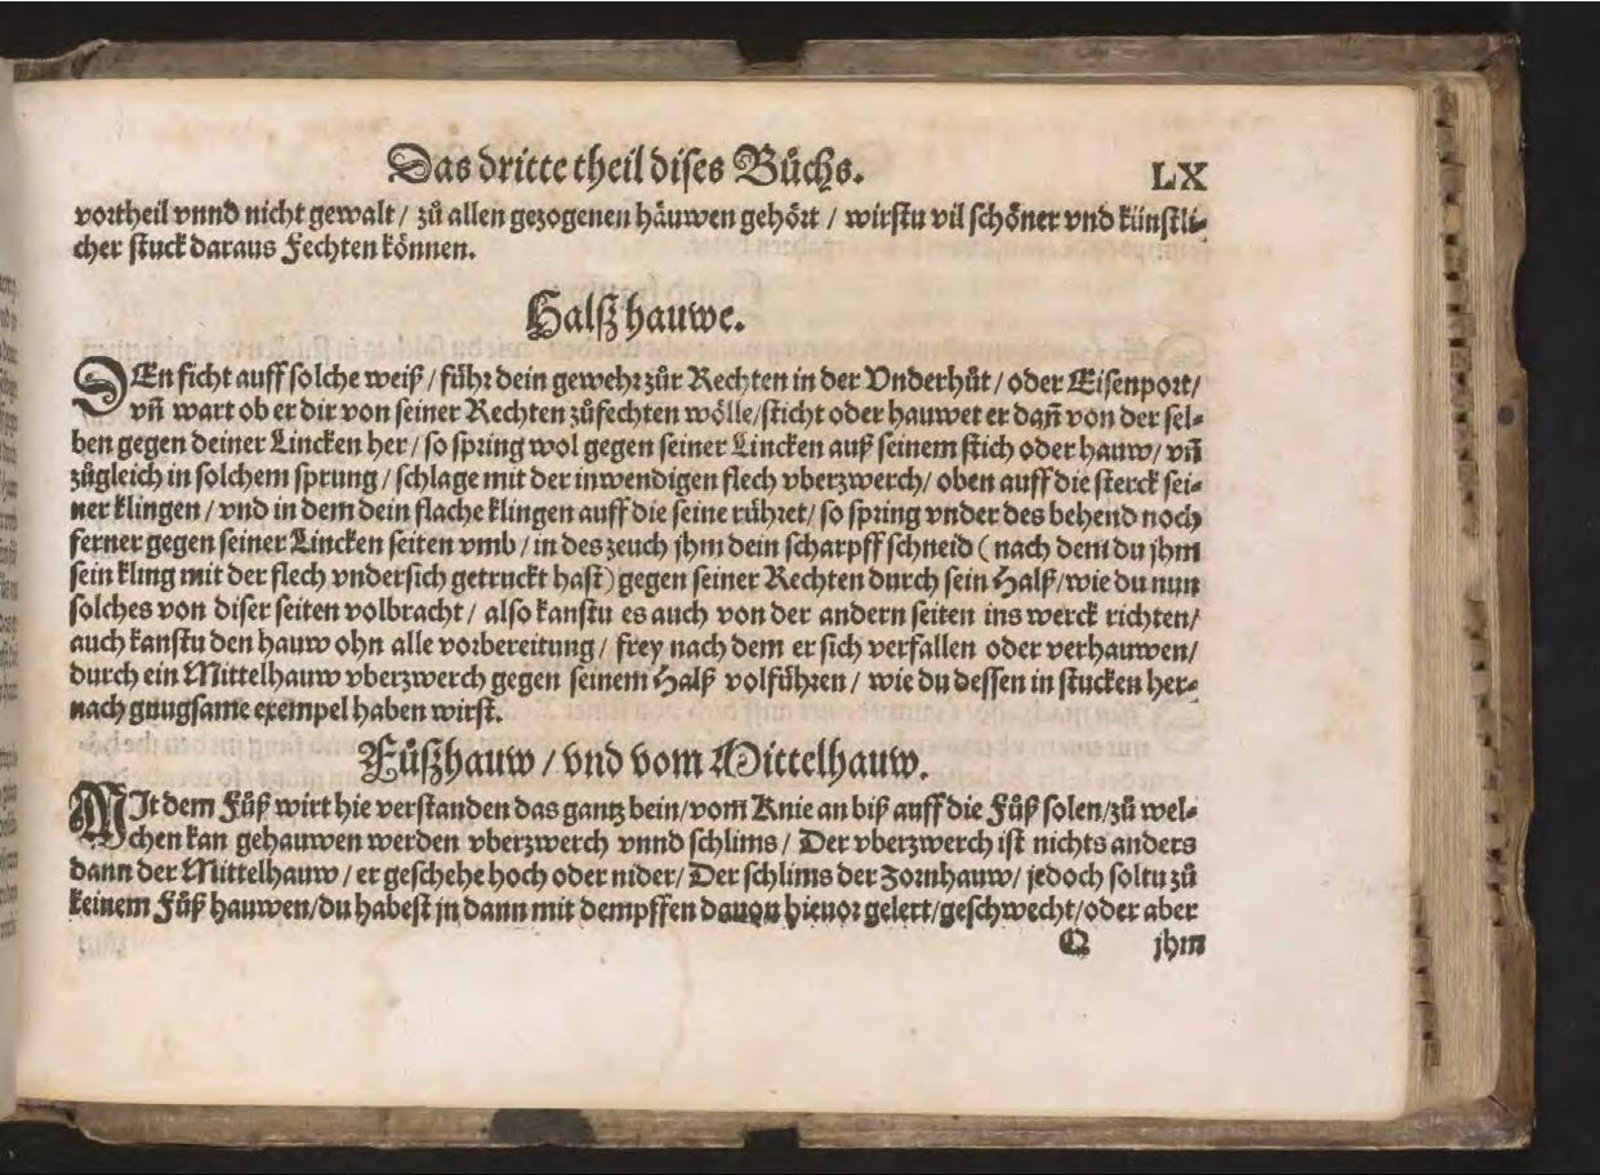 Das dritte theil dises Bůchs. LX
vortheil vnnd nicht gewalt / zů allen gezogenen häuwen gehört / wirstu vil schöner vnd künstli-
cher stuck daraus Fechten können.
Halßhauwe.
DEn ficht auff solche weiß / führ dein gewehr zůr Rechten in der Vnderhůt / oder Eisenport /
vñ wart ob er dir von seiner Rechten zůfechten wölle / sticht oder hauwet er dañ von der sel-
ben gegen deiner Lincken her / so spring wol gegen seiner Lincken auß seinem stich oder hauw / vñ
zůgleich in solchem sprung / schlage mit der inwendigen flech vberzwerch / oben auff die sterck sei-
ner klingen / vnd in dem dein flache klingen auff die seine rühret / so spring vnder des behend noch
ferner gegen seiner Lincken seiten vmb / in des zeuch jhm dein scharpff schneid ( nach dem du jhm
sein kling mit der flech vndersich getruckt hast ) gegen seiner Rechten durch sein Halß / wie du nun
solches von diser seiten volbracht / also kanstu es auch von der andern seiten ins werck richten /
auch kanstu den hauw ohn alle vorbereitung / frey nach dem er sich verfallen oder verhauwen /
durch ein Mittelhauw vberzwerch gegen seinem Halß volführen / wie du dessen in stucken her-
nach gnugsame exempel haben wirst.
Fůßhauw / vnd vom Mittelhauw.
MIt dem Fůß wirt hie verstanden das gantz bein / vom̄ Knie an biß auff die Fůß solen / zů wel-
chen kan gehauwen werden vberzwerch vnnd schlims / Der vberzwerch ist nichts anders
dann der Mittelhauw / er geschehe hoch oder nider / Der schlims der Zornhauw / jedoch soltu zů
keinem Fůß hauwen / du habest jn dann mit dempffen dauon hieuor gelert / geschwecht / oder aber
Q jhm